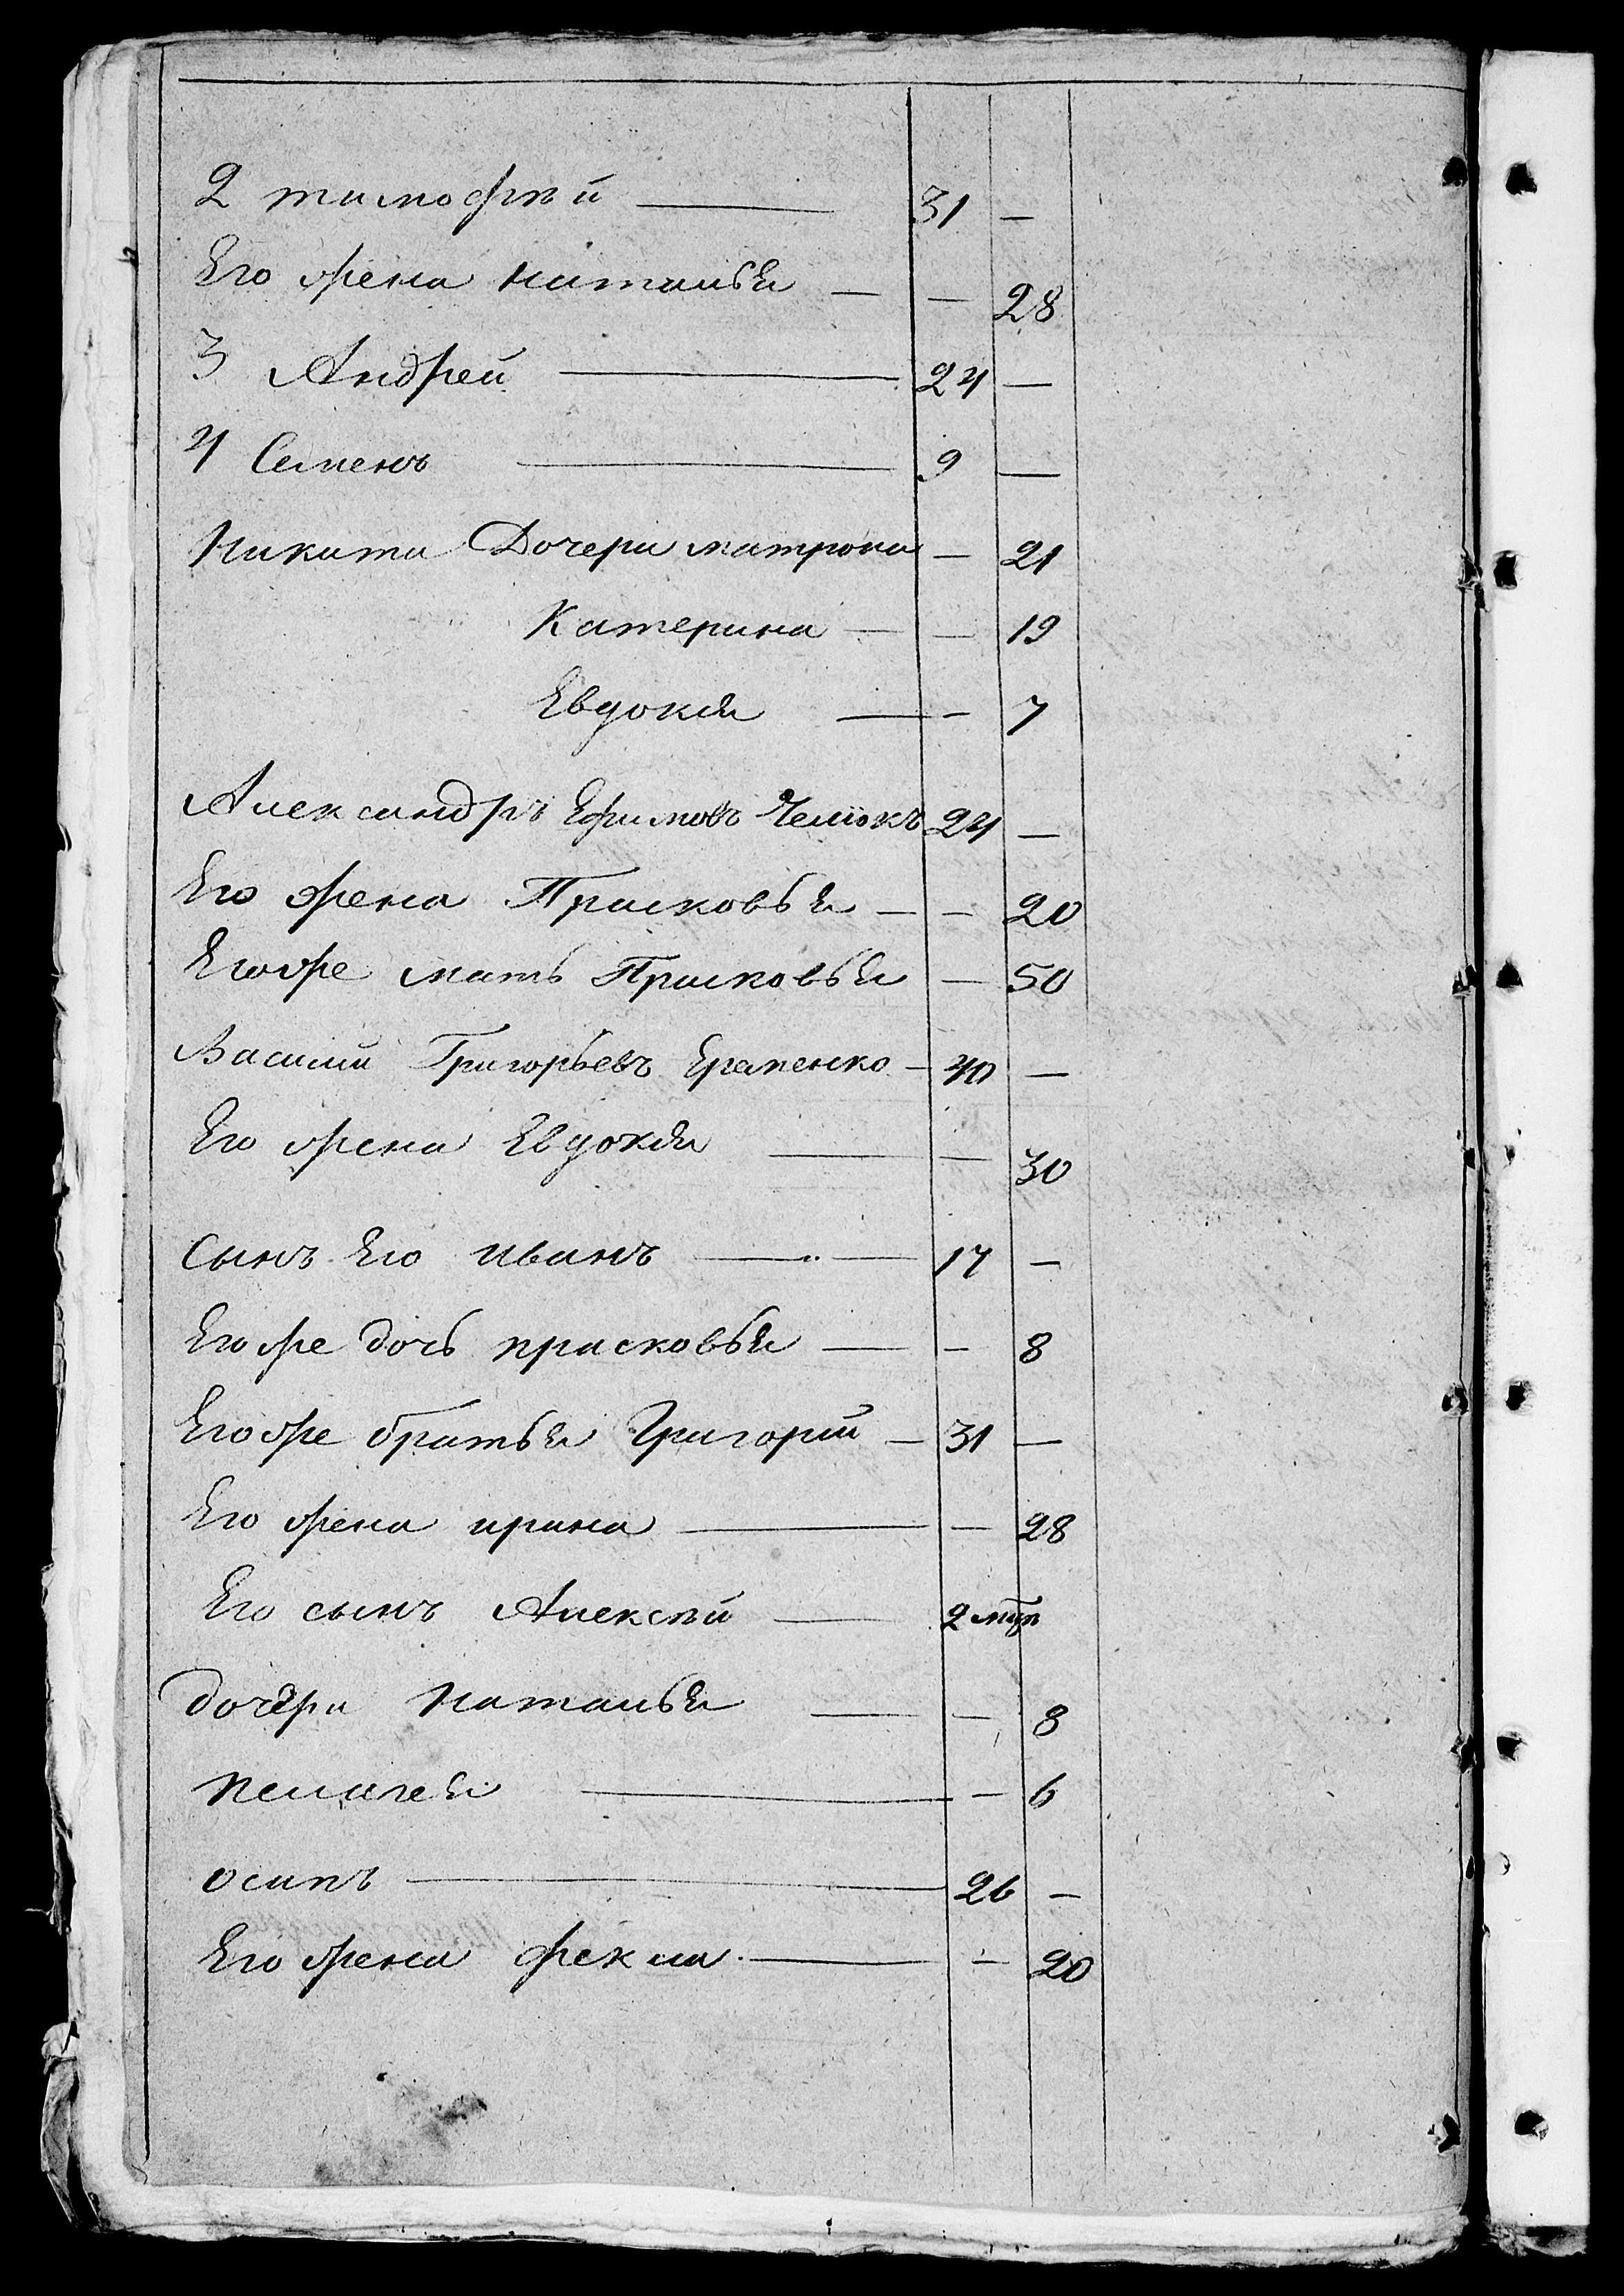 2 тимофѣй — 31 —
Его жена наталья — — 28
3 Андрей — 24 —
4 Семенъ — 9 —
Никита Дочери матрона — 21
Катерина — — 19
Евдокия — — 7
Александръ Ефимовъ 24 —
Его жена Прасковья — — 20
Егоже мать Прасковья — 50
Василий Григорьевъ Еременко — 40 —
Его жена Евдокия — — 30
Сынъ Его иванъ — — 17 —
Егоже дочь прасковья — — 8
Егоже братья Григорий — 31 —
Его жена ирина — — 28
Его сынъ Алексѣй — 2
дочери Наталья — — 8
пелагея — — 6
осипъ — 26 —
Его жена фекла — — 20